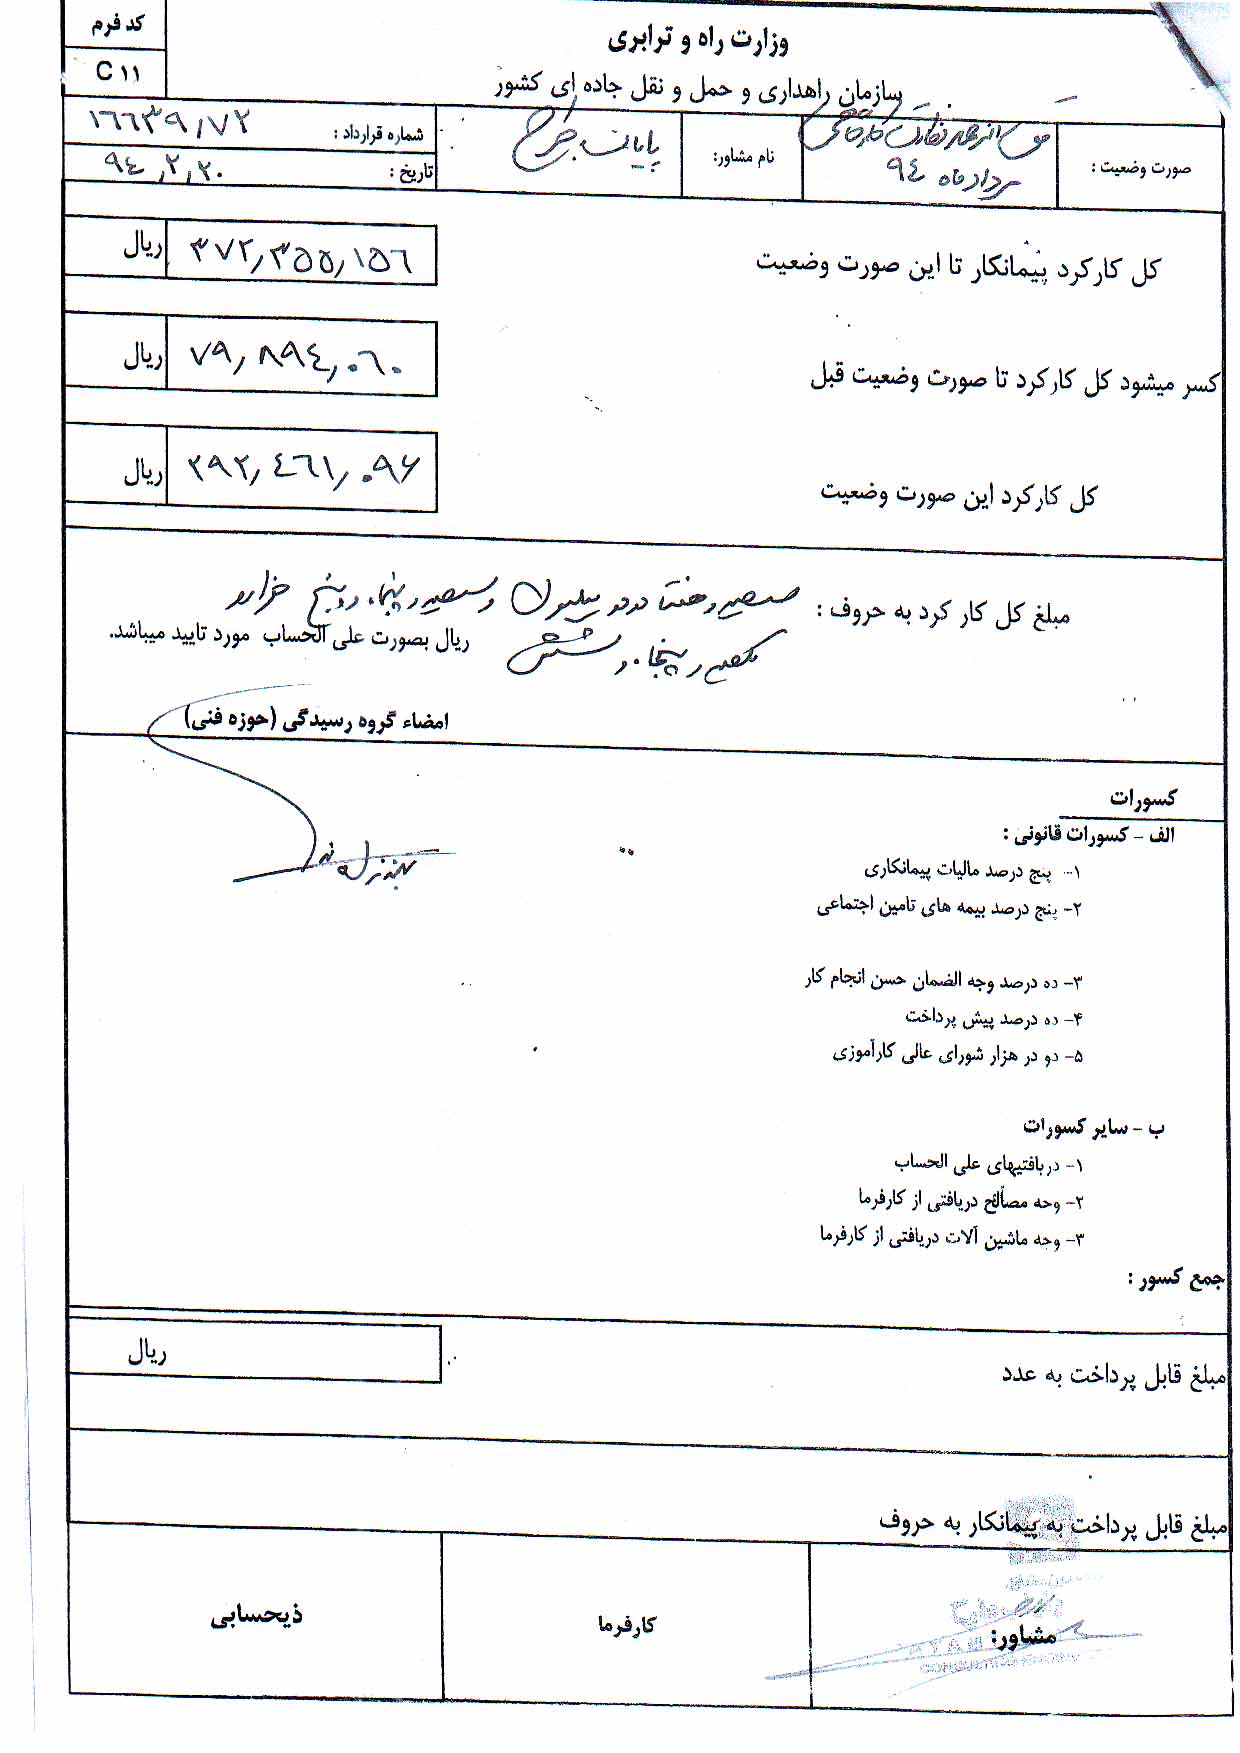 کد فرم
C ۱۱
وزارت راه و ترابری
سازمان راهداری و حمل و نقل جاده ای کشور
صورت وضعیت :
حق الزحمه نظارت کارگاهی
مرداد ماه ۹٤
نام مشاور:
پایات طرح
شماره قرارداد :
۱٦٦۳۹٫۷۲
تاریخ :
۹٤٫۲٫۲۰
کل کارکرد پیمانکار تا این صورت وضعیت
۳۷۲٫۳۵۵٫۱۵٦
ریال
کسر میشود کل کارکرد تا صورت وضعیت قبل
۷۹٫۸۹٤٫۰٦۰
ریال
کل کارکرد این صورت وضعیت
۲۹۲٫٤٦۱٫۰۹۶
ریال
مبلغ کل کار کرد به حروف :
سیصد و هفتاد و دو میلیون و سیصد و پنجاه و پنج هزار و
یکصد و پنجاه و شش
ریال بصورت علی الحساب مورد تایید میباشد.
امضاء گروه رسیدگی (حوزه فنی)
کسورات
الف - کسورات قانونی :
۱- پنج درصد مالیات پیمانکاری
۲- پنج درصد بیمه های تامین اجتماعی
۳- ده درصد وجه الضمان حسن انجام کار
۴- ده درصد پیش پرداخت
۵- دو در هزار شورای عالی کارآموزی
ب - سایر کسورات
۱- دریافتیهای علی الحساب
۲- وجه مصالح دریافتی از کارفرما
۳- وجه ماشین آلات دریافتی از کارفرما
جمع کسور :
مبلغ قابل پرداخت به عدد
ریال
مبلغ قابل پرداخت به پیمانکار به حروف
مشاور:
کارفرما
ذیحسابی